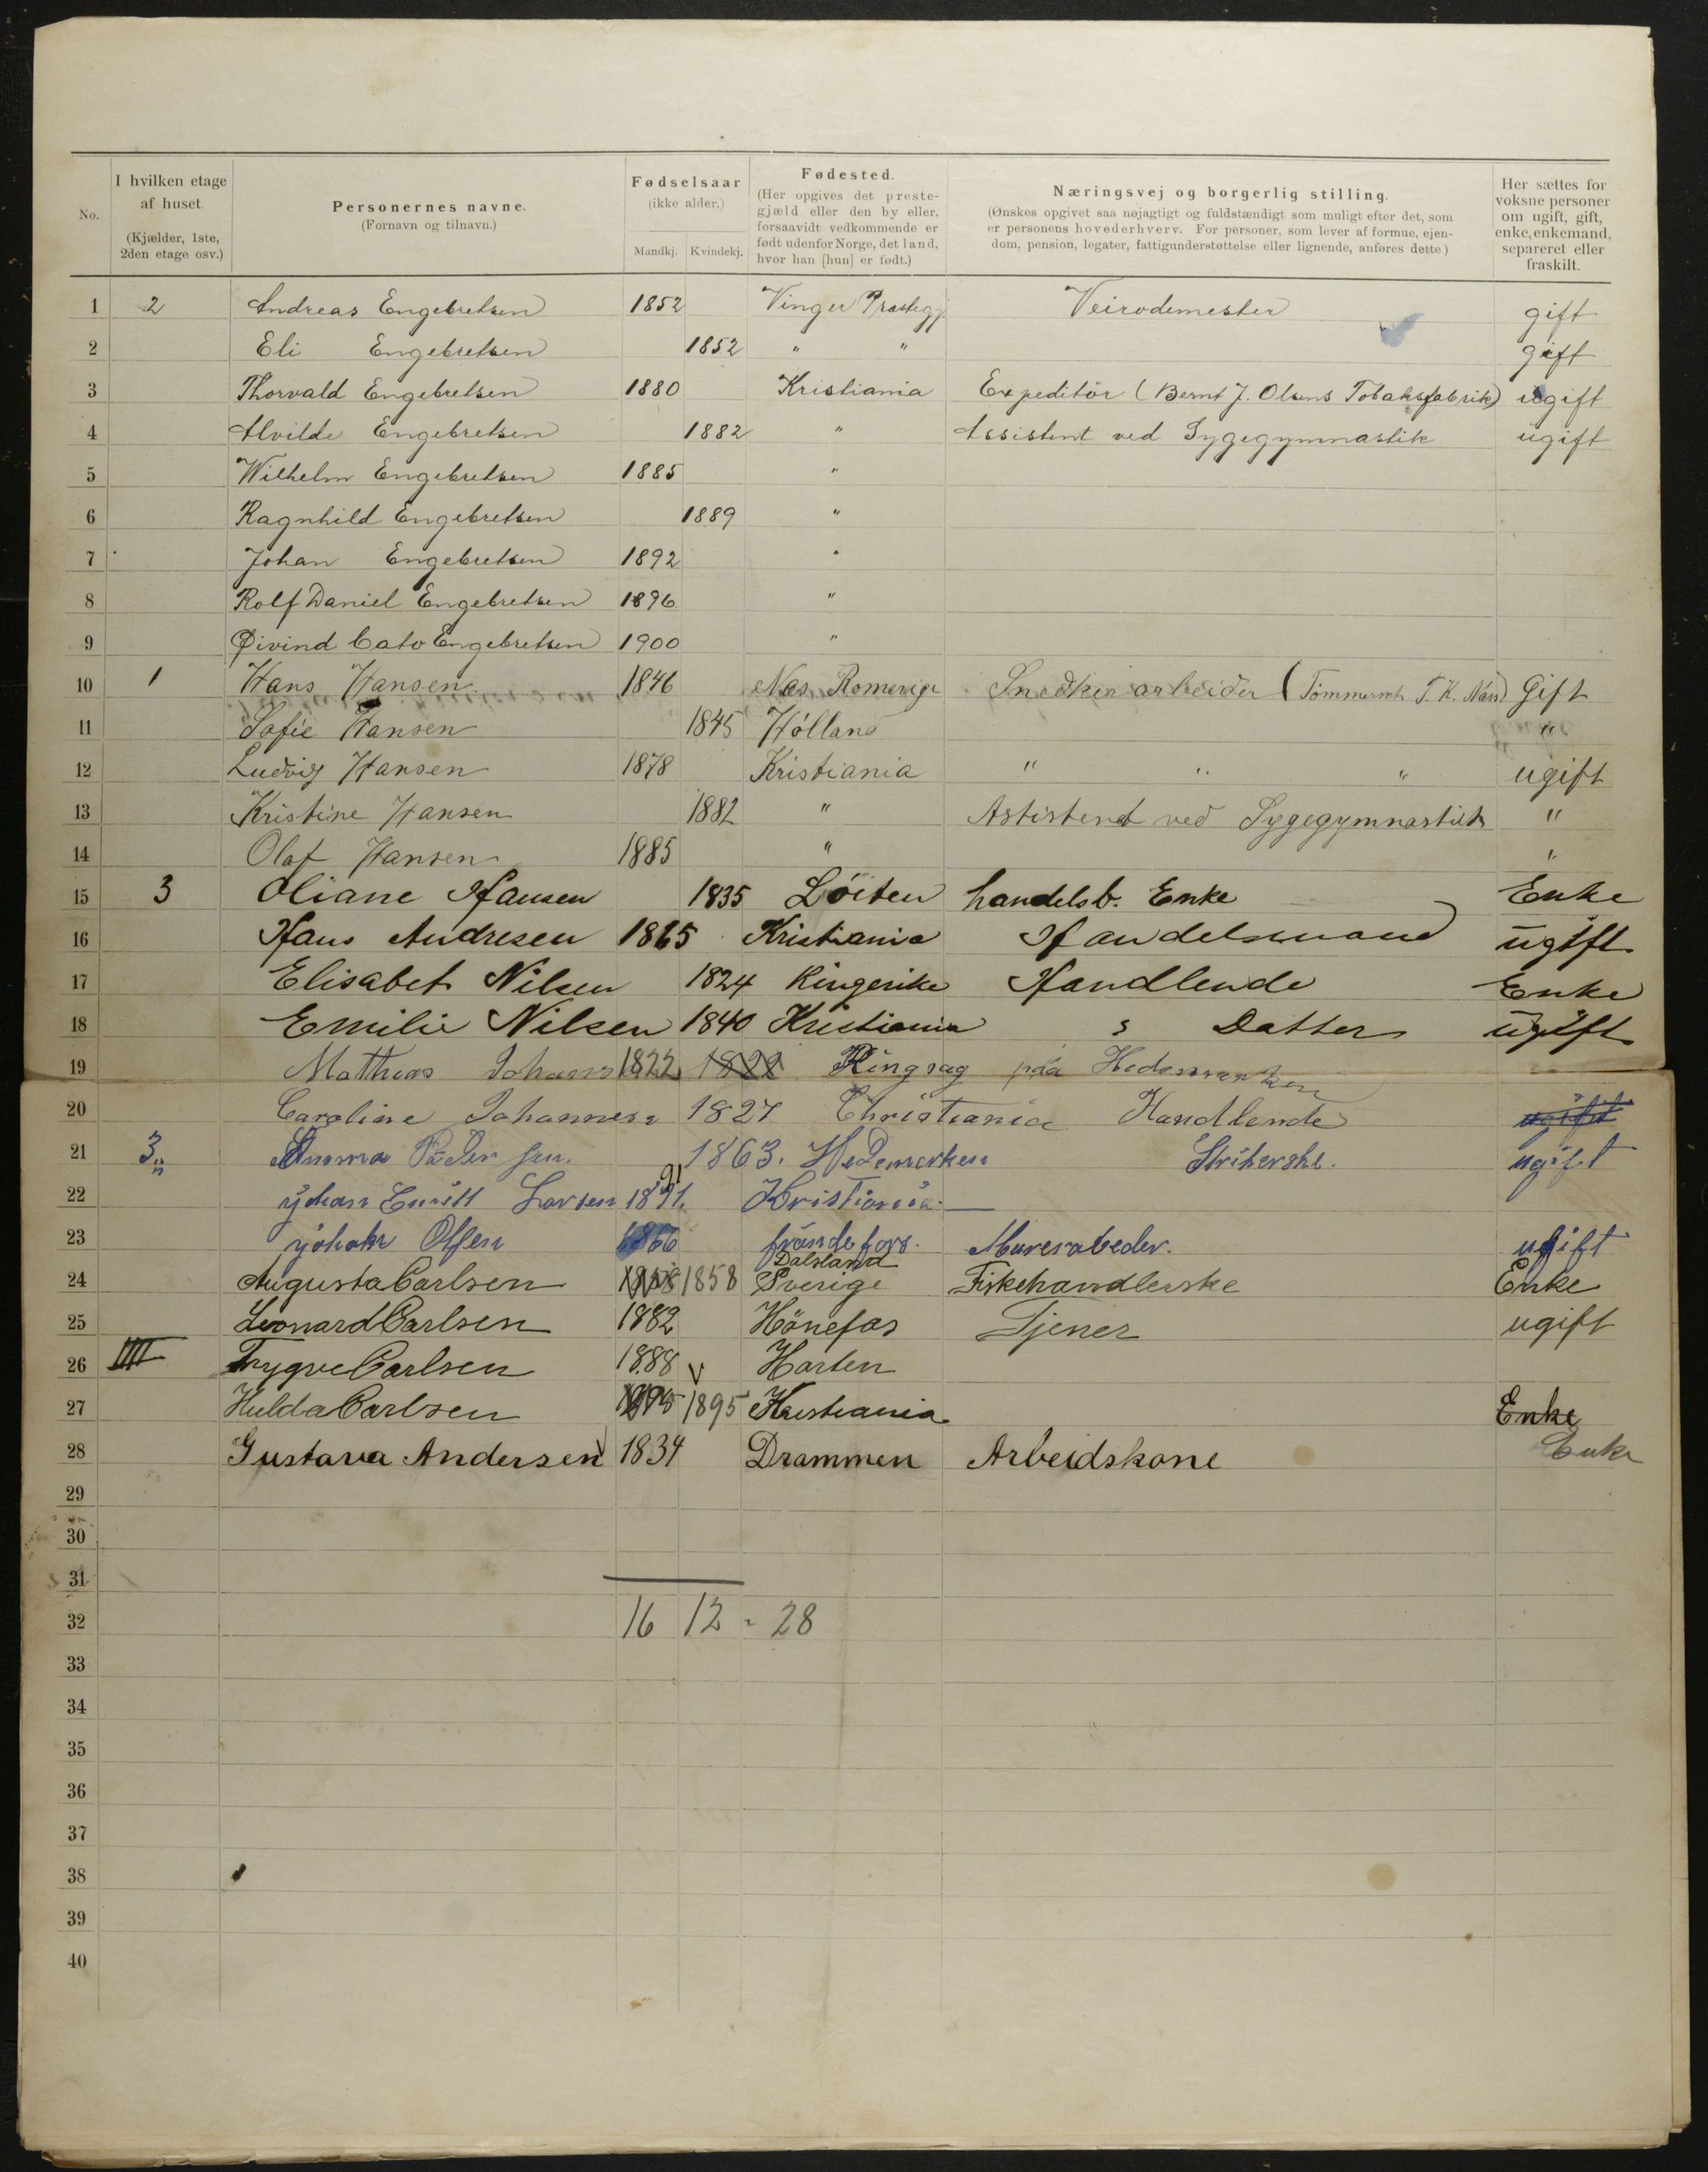 No.
I hvilken etage af huset. (Kjælder, 1ste, 2den etage osv.)
Personernes navne. (Fornavn og tilnavn.)
Fødselsaar (ikke alder.) Mandkj. Kvindekj.
Fødested. (Her opgives det prestegjæld eller den by eller, forsaavidt vedkommende er født udenfor Norge, det land, hvor han [hun] er født.)
Næringsvej og borgerlig stilling. (Ønskes opgivet saa nøjagtigt og fuldstændigt som muligt efter det, som er personens hovederhverv. For personer, som lever af formue, ejendom, pension, legater, fattigunderstøttelse eller lignende, anføres dette)
Her sættes for voksne personer om ugift, gift, enke, enkemand, separeret eller fraskilt.
1 2 Andreas Engebretsen 1852 Vinger Præstegj. Veirodemester gift
2 Eli Engebretsen 1852 " " gift
3 Thorvald Engebretsen 1880 Kristiania Expeditör (Bernt J. Olsens Tobaksfabrik) ugift
4 Alvilde Engebretsen 1882 " Assistent ved Sygegymnastik ugift
5 Wilhelm Engebretsen 1885 "
6 Ragnhild Engebretsen 1889 "
7 Johan Engebretsen 1892 "
8 Rolf Daniel Engebretsen 1896 "
9 Øivind Cato Engebretsen 1900 "
10 1 Hans Hansen 1846 Næs Romerige Snedker arbeider (Tömmermh T. K. Næss) Gift
11 Sofie Hansen 1845 Hölland "
12 Ludvig Hansen 1878 Kristiania " " " ugift
13 Kristine Hansen 1882 " Astistent ved Sygegymnastik "
14 Olaf Hansen 1885 " "
15 3 Oliane Hansen 1835 Löiten handelsb. Enke Enke
16 Hans Andresen 1865 Kristiania Handelsmand ugift
17 Elisabet Nilsen 1824 Ringerike Handlende Enke
18 Emilie Nilsen 1840 Kristiania s Datter ugift
19 Mathias Johans 1822 1822 Ringsag paa Hedemarken
20 Caroline Johannesn 1827 Christiania Handlende ugift
21 3" Amma Pedersen. 1863. Hedemarken Strikerske. ugift
22 Johan Emill Larsen 1891. 91 Kristiania.
23 Johan Olsen 1866 frändefors. Murerabeder. ugift
24 Augusta Carlsen 1858 1858 Dalsland Sverige Fiskehandlerske Enke
25 Leonard Carlsen 1882 Hönefos Tjener ugift
26 IIII Trygve Carlsen 1888 v Horten
27 Hulda Carlsen 1895 1895 Kristiania Enke
28 Gustava Andersen 1834 Drammen Arbeidskone Enke
29
30
31
32 16 12 = 28
33
34
35
36
37
38
39
40